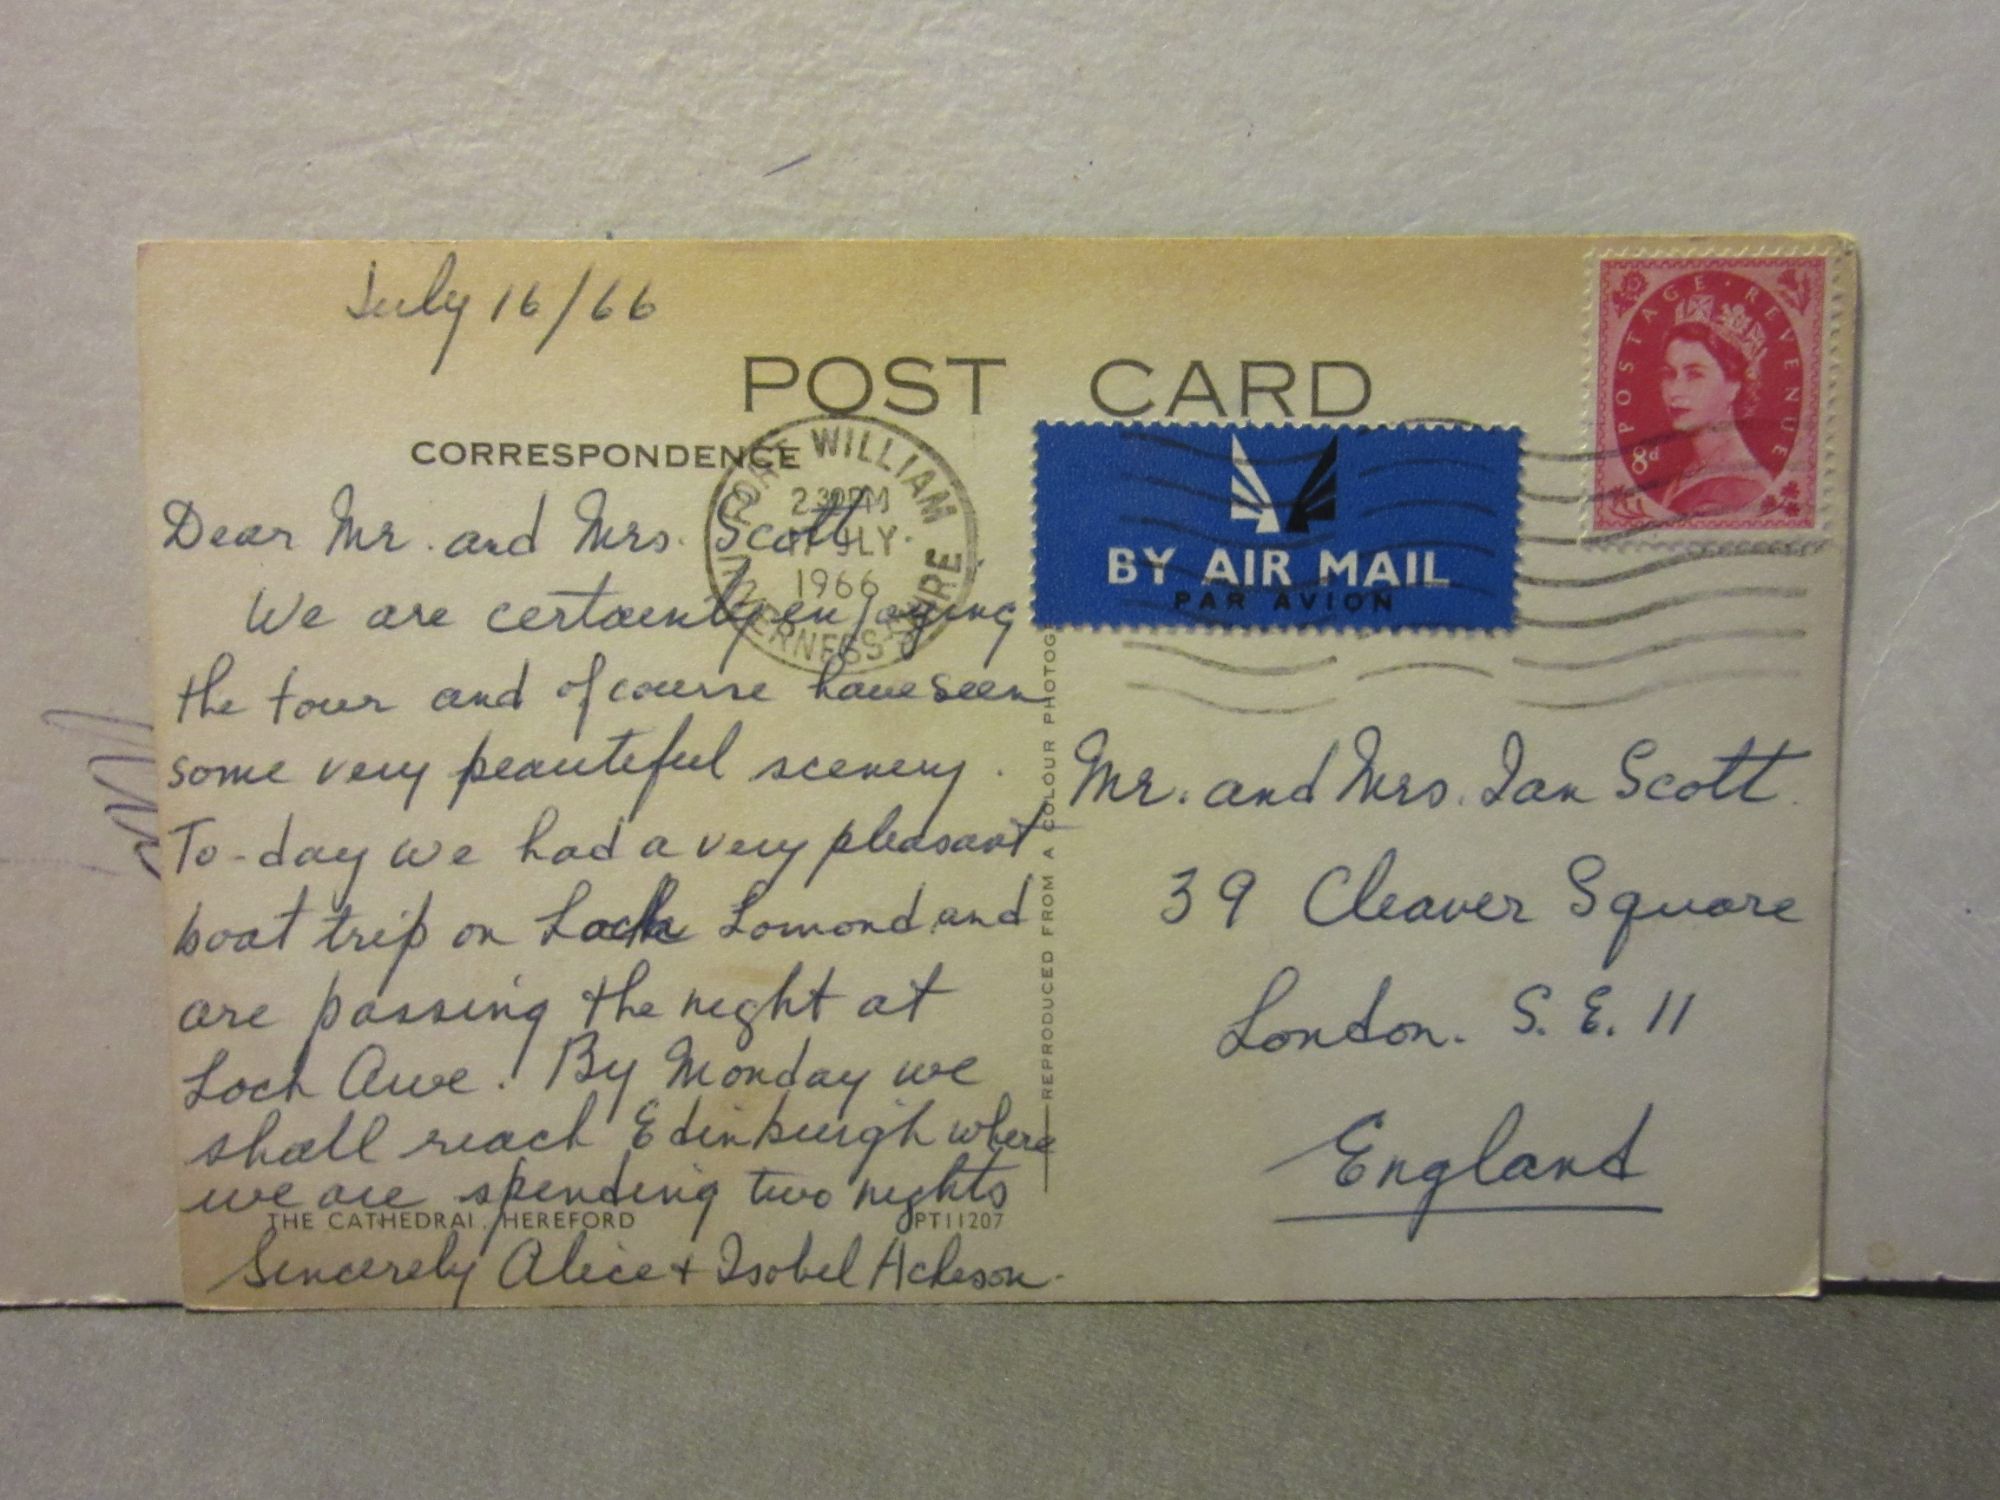 July 16/66
POST CARD
CORRESPONDENCE
FORT WILLIAM
2 30PM
17 JLY
1966
INVERNESS-SHIRE
BY AIR MAIL
PAR AVION
POSTAGE · REVENUE
8d
Dear Mr. and Mrs. Scott.
We are certainly enjoying
the tour and of course have seen
some very beautiful scenery.
To-day we had a very pleasant
boat trip on Loch Lomond and
are passing the night at
Loch Awe. By Monday we
shall reach Edinburgh where
we are spending two nights
THE CATHEDRAL, HEREFORD
PT11207
Sincerely Alice + Isobel Acheson.
REPRODUCED FROM A COLOUR PHOTOG
Mr. and Mrs. Ian Scott.
39 Cleaver Square
London. S. E. 11
England